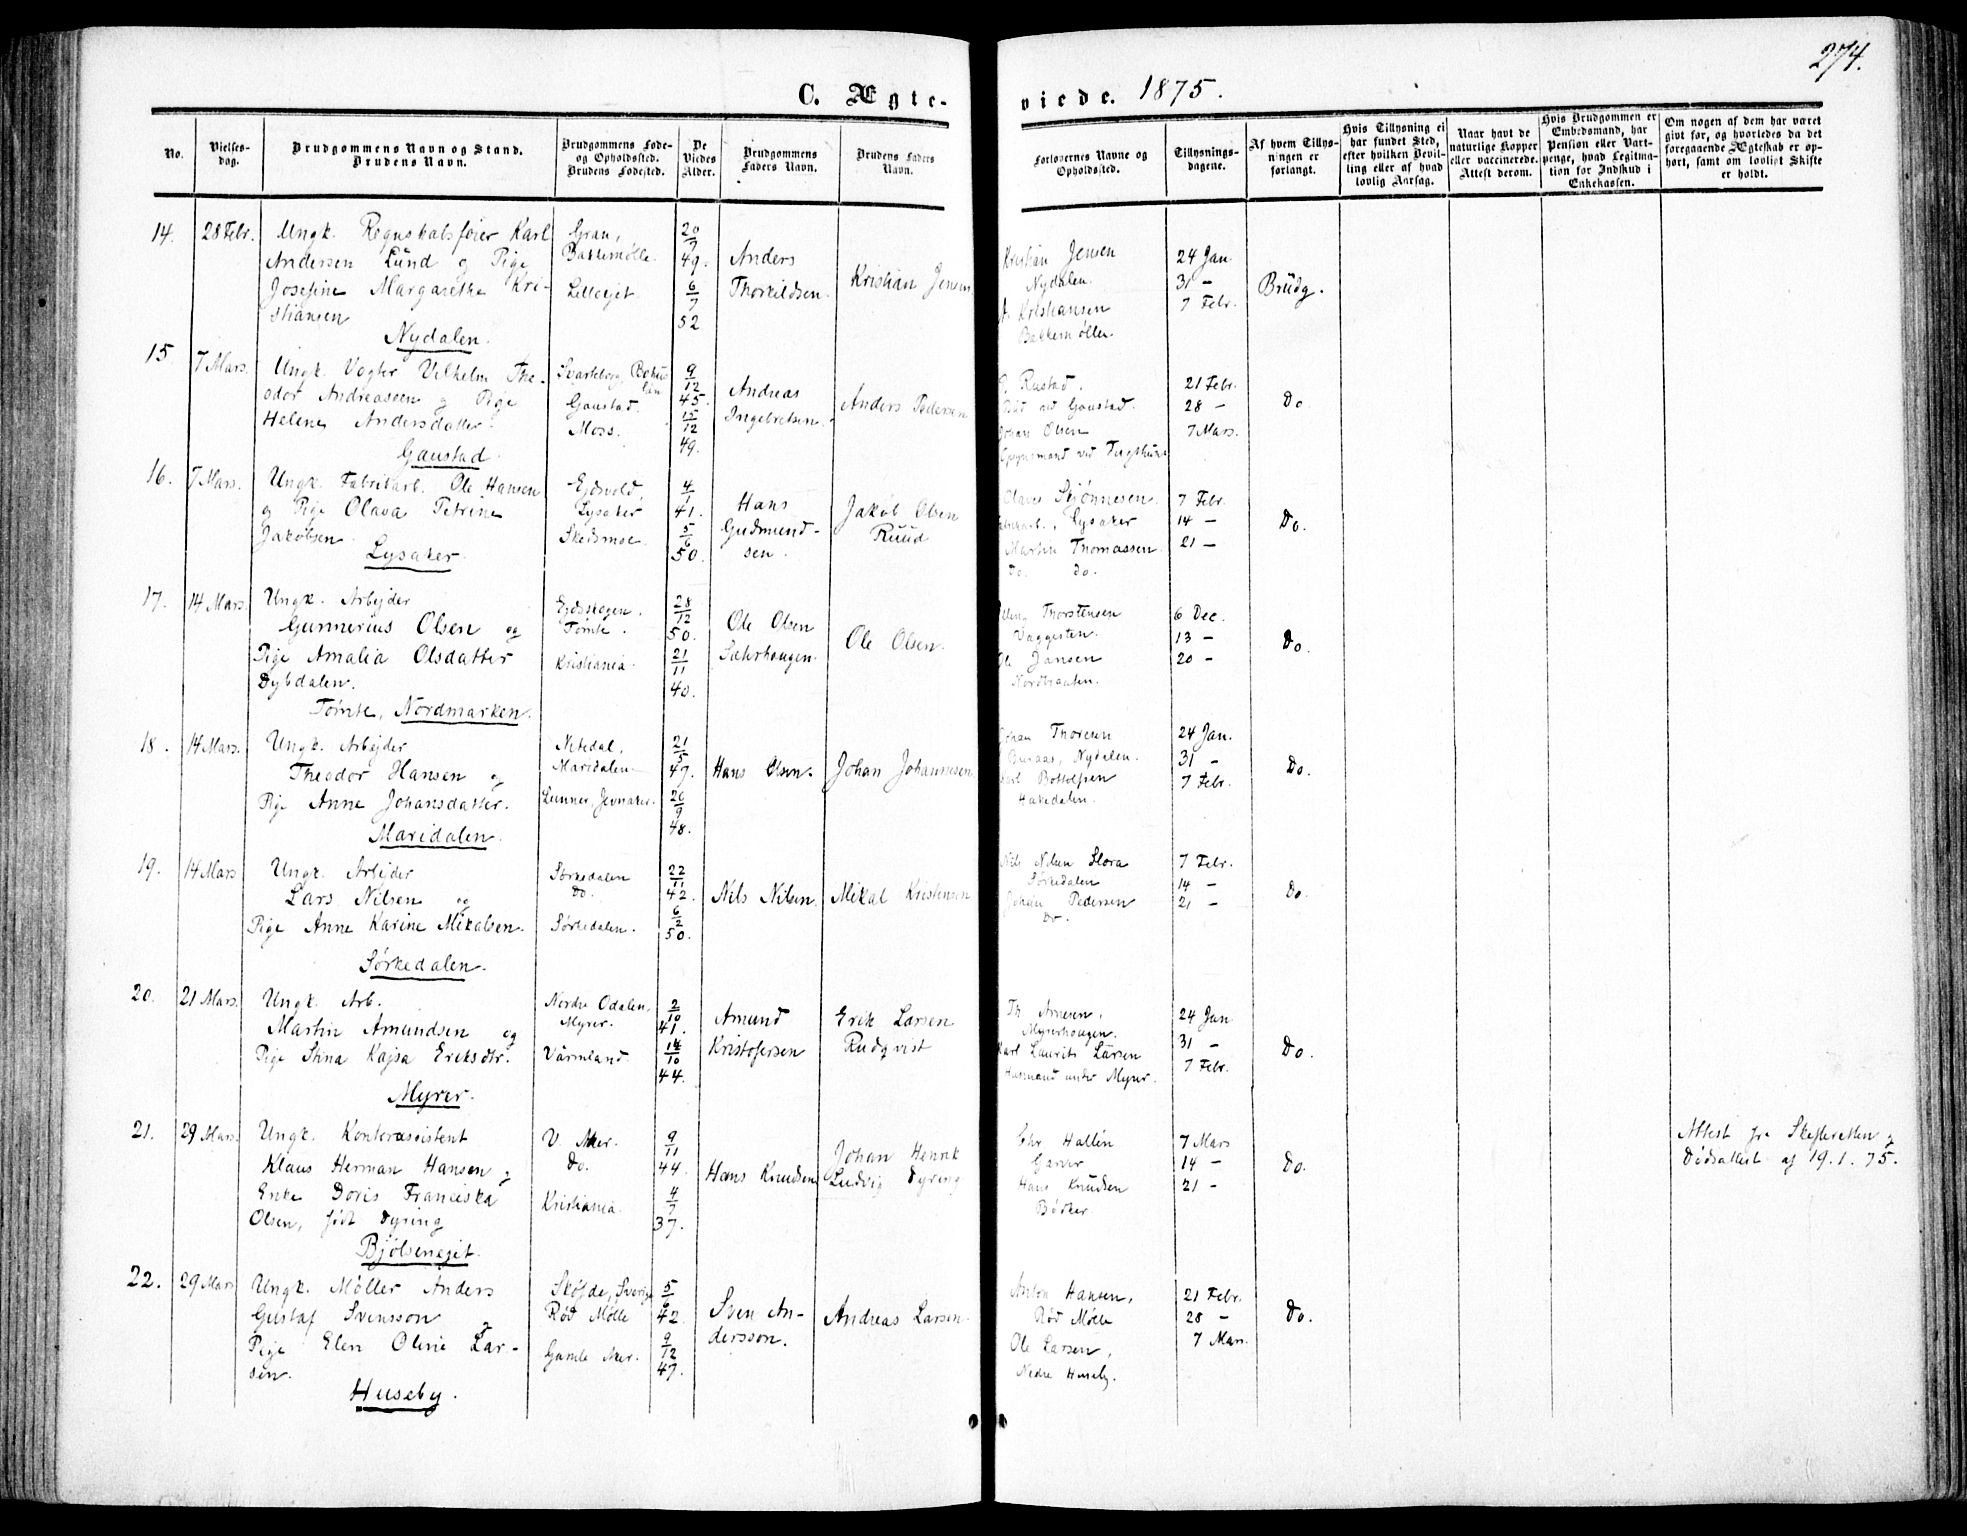 274.
C. Ægte-
viede. 1875.
No.
Vielses-
dag.
Brudgommens Navn og Stand.
Brudens Navn.
Brudgommens Føde-
og Opholdssted.
Brudens Fødested.
De
Viedes
Alder.
Brudgommens
Faders Navn.
Brudens Faders
Navn.
Forlovernes Navne og
Opholdssted.
Tillysnings-
dagene.
Af hvem Tillys-
ningen er
forlangt.
Hvis Tillysning ei
har fundet Sted,
efter hvilken Bevil-
ling eller af hvad
lovlig Aarsag.
Naar havt de
naturlige Kopper
eller vaccinerede.
Attest derom.
Hvis Brudgommen er
Embedsmand, har
Pension eller Vart-
penge, hvad Legitima-
tion for Indskud i
Enkekassen.
Om nogen af dem har været
gift før, og hvorledes da det
foregaaende Ægteskab er op-
hørt, samt om lovligt Skifte
er holdt.
14.
28 Febr.
Ungk. Regnskabsfører Karl
Andersen Lund og Pige
Josefine Margarethe Kri-
stiansen
Nydalen.
Gran,
Bakkemølle.
Lilleejet.
20/7
49.
6/7
52
Anders
Thorkildsen.
Kristian Jensen
Kristian Jensen
Nydalen.
A. Kristiansen
Bakkemøllen
24 Jan
31 -
7 Febr.
Brudg.
15
7 Mars.
Ungk. Vogter Vilhelm The-
odor Andreassen og Pige
Helene Andersdatter.
Gaustad.
Svarteborg, Bohus
län
Gaustad.
Moss.
9/12
45.
15/12
49.
Andreas
Ingebretsen.
Anders Pedersen
Rustad.
ved Gaustad.
Johan Olsen
Opsynsmand ved
21 Febr.
28 -
7 Mars.
Do
16.
7 Mars.
Ungk. Fabrikarb. Ole Hansen
og Pige Olava Petrine
Jakobsen.
Lysaker.
Ejdsvold,
Lysaker
Skedsmoe.
4/1
41.
5/6
50.
Hans
Gudmund-
sen.
Jakob Olsen
Ruud
Olaves Skjønnesen.
Fabrikarb., Lysaker
Martin Thomassen.
Do. Do.
7 Febr.
14 -
21 -
Do.
17.
14 Mars.
Ungk. Arbejder
Gunnerius Olsen og
Pige Amalia Olsdatter
Dybdalen.
Tømte, Nordmarken.
Ejdskogen.
Tømte.
Kristiania.
28/12
50.
21/11
40.
Ole Olsen
Sæterhaugen.
Ole Olsen.
Thorstensen
Vaggesten.
Ole Jansen
Nordbraaten.
6 Dec.
13 -
20 -
Do.
18.
14 Mars.
Ungk. Arbejder
Theodor Hansen og
Pige Anne Johansdatter.
Maridalen.
Nitedal,
Maridalen
Lunner, Jevnaker.
21/5
47.
26/9
48.
Hans Olsen.
Johan Johannesen
Johan Thoresen
Buraas, Nydalen.
Karl Bottolfsen
Hakedalen.
24 Jan.
31 -
7 Febr.
Do.
19.
14 Mars
Ungk. Arbejder
Lars Nilsen og
Pige Anne Karine Mikalsen.
Sørkedalen.
Sørkedalen
Do.
Sørkedalen.
22/11
42.
6/2
50.
Nils Nilsen
Mikal Kristensen
Nils Nilsen Slora
Sørkedalen
Johan Pedersen
Do.
7 Febr.
14 -
21 -
Do.
20.
21 Mars.
Ungk. Arb.
Martin Amundsen og
Pige Stina Kajsa Eriksdtr.
Myrer.
Nordre Odalen,
Myrer.
Värmland.
2/10
41.
14/10
44.
Amund
Kristofersen
Erik Larsen
Rudqvist
Th. Arnesen.
Myrerhaugen.
Karl Laurits Larsen
Husmand under Myrer.
24 Jan
31 -
7 Febr.
Do.
21.
29 Mars.
Ungk. Kontorassistent
Klaus Herman Hansen og
Enke Doris Franciska
Olsen, født Dyring
Bjølsenejet.
V. Aker.
Do.
Kristiania.
9/11
44.
4/7
37.
Hans Knudsen
Johan Henrik
Ludvig Dyring
Chr Hallén
Garver
Hans Knudsen
Bødker
7 Mars
14 -
21 -
Do.
Attest fra Skifteretten og
Dødsattest af 19.1.75.
22.
29 Mars
Ungk. Møller Anders
Gustaf Svensson og
Pige Elen Oline Lar-
sen.
Huseby.
Sköfde, Sverige
Rød Mølle
Gamle Aker.
5/6
42.
9/12
47.
Sven An-
dersson.
Andreas Larsen.
Anton Hansen,
Rød Mølle
Ole Larsen,
Nedre Huseby.
21 Febr.
28 -
7 Mars.
Do.